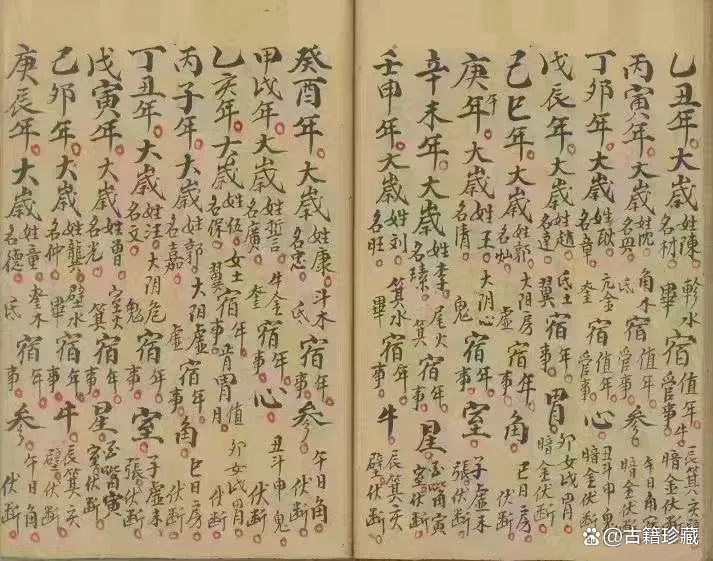 乙丑年大歲姓陳名材軫水畢宿值年管事牛辰箕亥暗金伏断
丙寅年大歲姓沈名興角木氐宿值年管事參午日角暗金伏断
丁卯年大歲姓耿名章亢金奎宿值年管事心丑斗申鬼暗金伏断
戊辰年大歲姓趙名達氐土翼宿年事胃卯女戌胃暗金伏断
己巳年大歲姓郭名灿大阴房虚宿年事角巳日房伏断
庚午年大歲姓王名清大阴心鬼宿年事室子虚未張伏断
辛未年大歲姓李名尾火箕宿年事星觜寅室伏断
壬申年大歲姓刘名旺箕水畢宿年事牛辰箕亥壁伏断
癸酉年大歲姓康名忠斗木氐宿年事參午日角伏断
甲戌年大歲姓誓名廣牛金奎宿年事心丑斗申鬼伏断
乙亥年大歲姓伍名保女土翼宿年事胃值月卯女戌胃伏断
丙子年大歲姓郭名嘉大阴虚虚宿年事角巳日房伏断
丁丑年大歲姓汪名文大阴危鬼宿年事室子虚未張伏断
戊寅年大歲姓曾名光室火箕宿年事星觜寅室伏断
己卯年大歲姓龔名仲壁水畢宿年事牛辰箕亥壁伏断
庚辰年大歲姓童名德奎木氐宿年事參午日角伏断
古籍珍藏